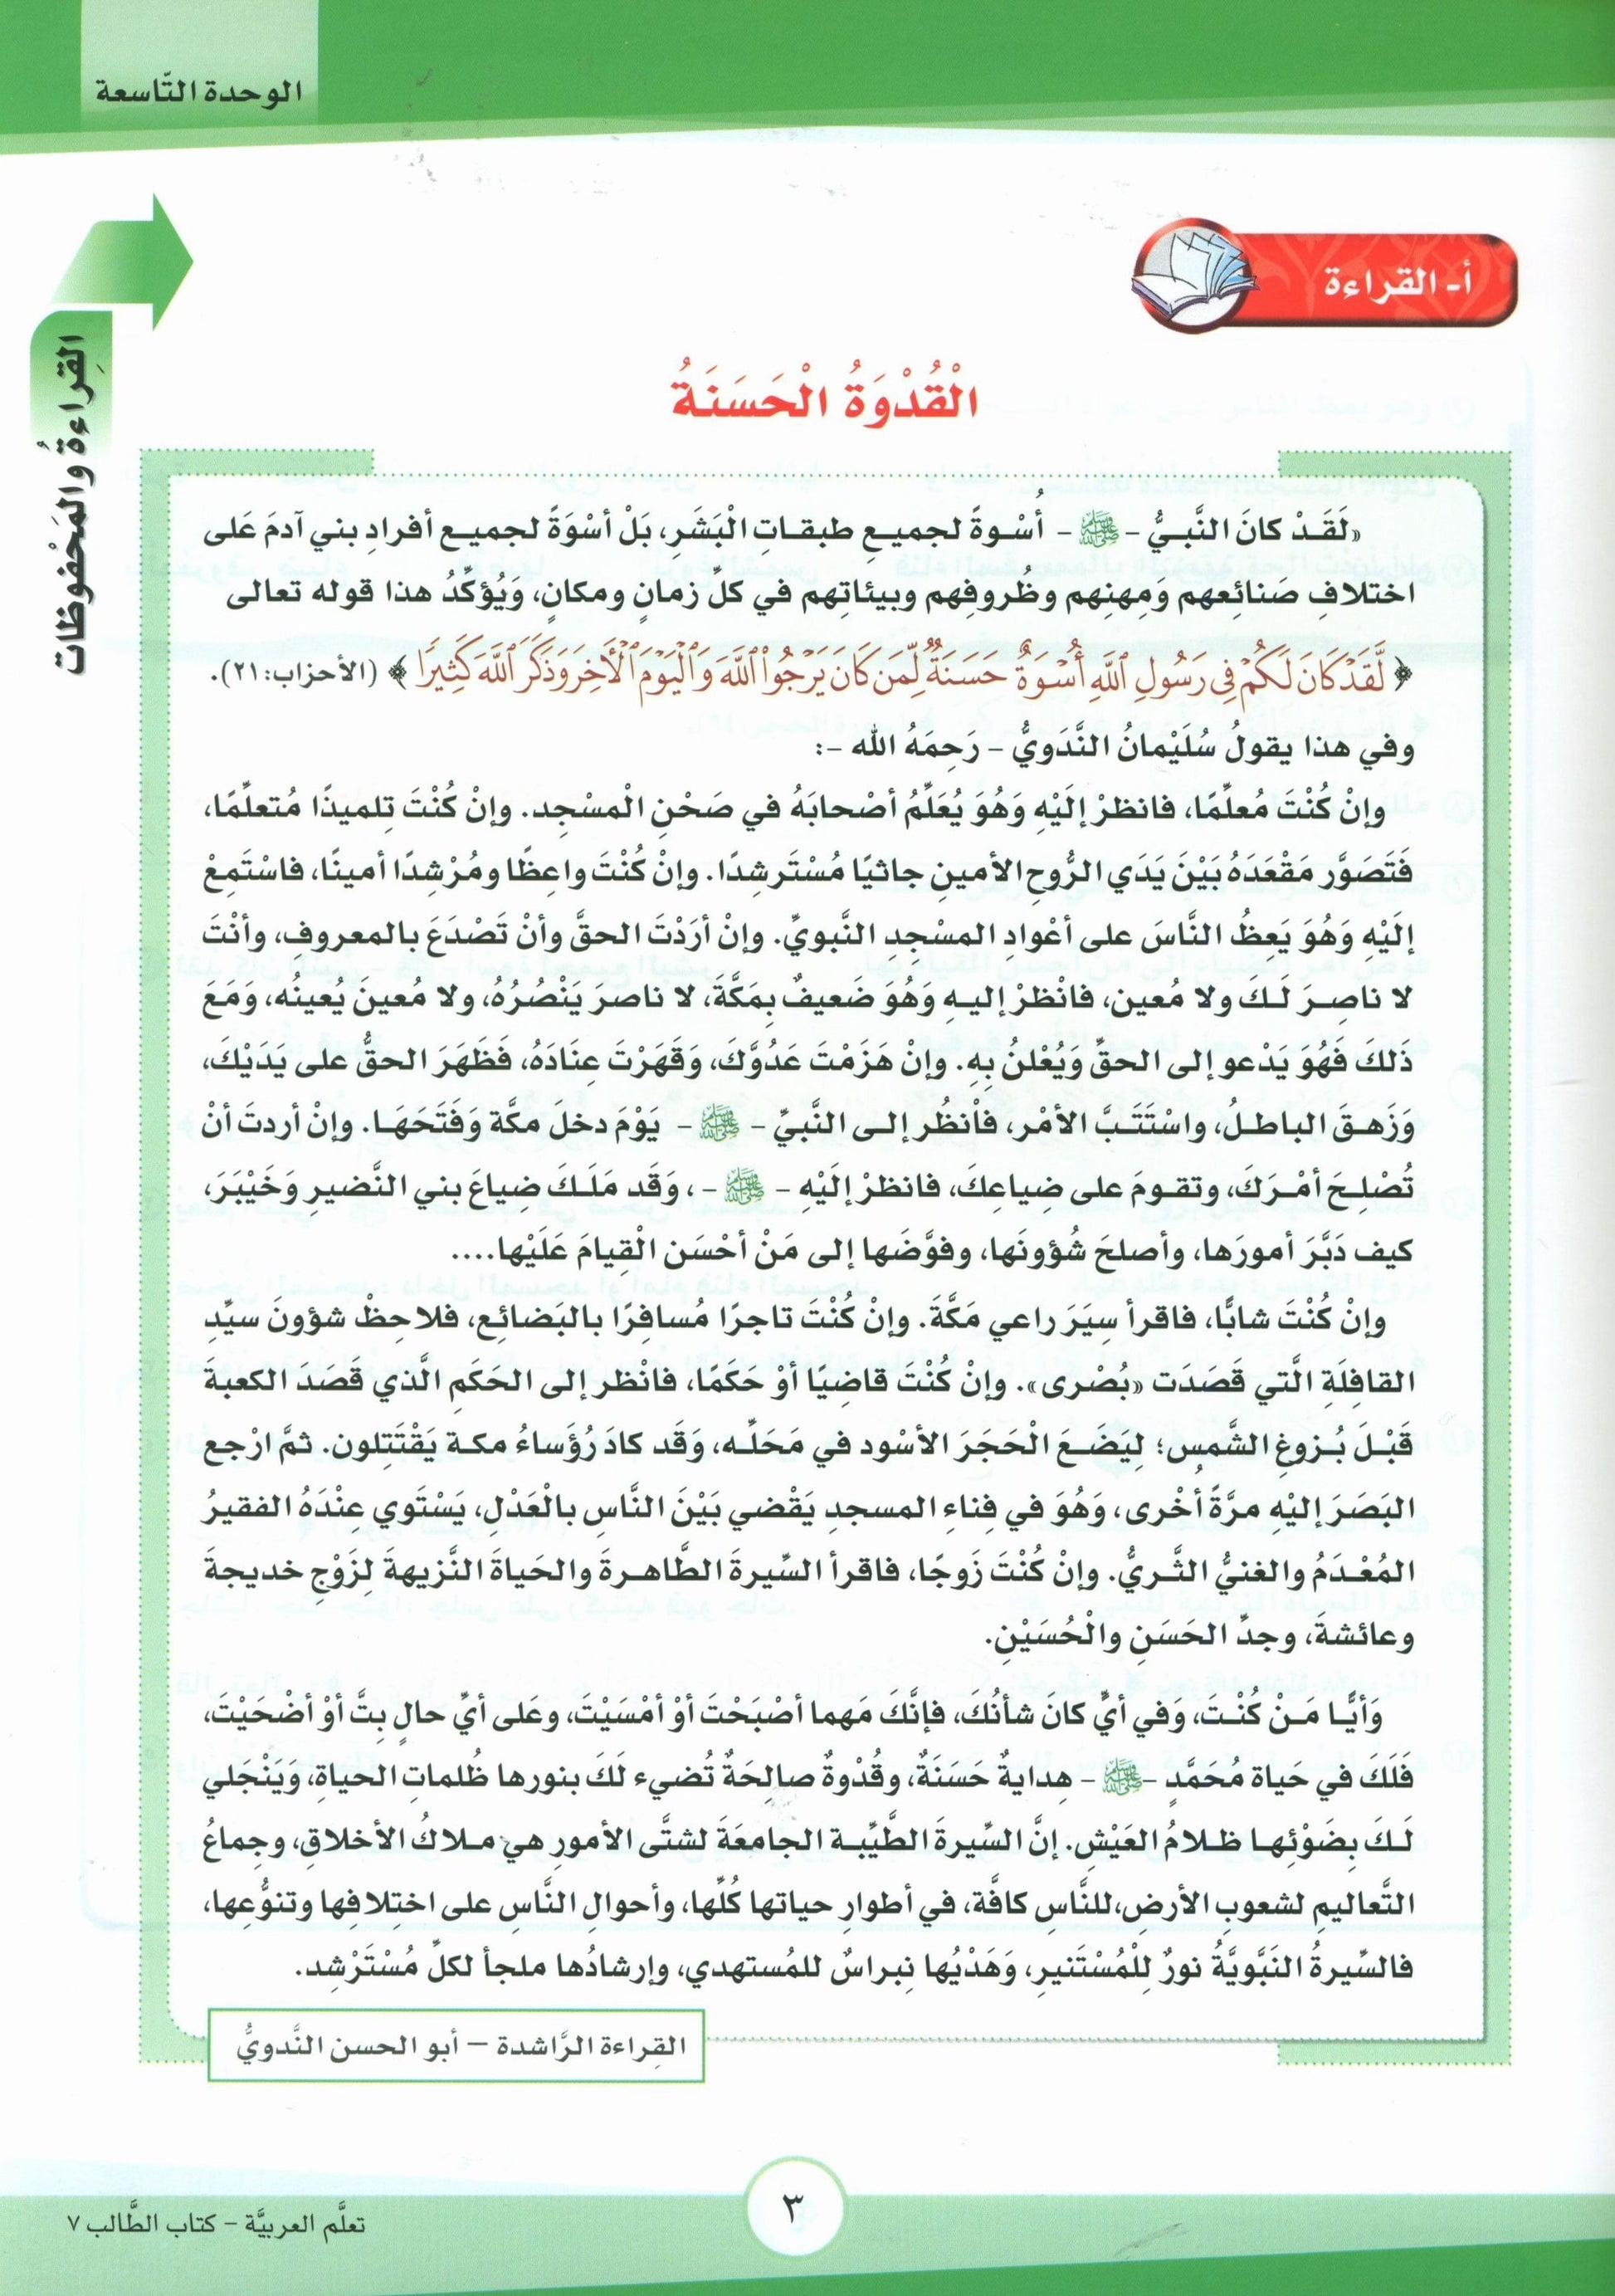 الوحدة التّاسعة
أ- القراءة
القِراءةُ والمَحْفوظات
الْقُدْوَةُ الْحَسَنَةُ
«لَقَدْ كانَ النَّبيُّ - ﷺ - أُسْوةً لجميعِ طبقاتِ الْبَشَرِ، بَلْ أسْوَةً لجميعِ أفرادِ بني آدمَ عَلى
اختلافِ صَنائِعهم وَمِهنِهم وظُروفِهم وبيئاتِهم في كلِّ زمانٍ ومكانٍ، وَيُؤكِّدُ هذا قوله تعالى
﴿ لَّقَدْ كَانَ لَكُمْ فِي رَسُولِ ٱللَّهِ أُسْوَةٌ حَسَنَةٌ لِّمَن كَانَ يَرْجُوا۟ ٱللَّهَ وَٱلْيَوْمَ ٱلْـَٔاخِرَ وَذَكَرَ ٱللَّهَ كَثِيرًا ﴾ (الأحزاب: ٢١).
وفي هذا يقولُ سُلَيْمانُ النَّدَويُّ - رَحِمَهُ الله -:
وإنْ كُنْتَ مُعلِّمًا، فانظرْ إلَيْهِ وَهُوَ يُعَلِّمُ أصْحابَهُ في صَحْنِ الْمسْجد. وإنْ كُنْتَ تِلميذًا مُتعلِّمًا،
فَتَصَوَّر مَقْعَدَهُ بَيْنَ يَدَي الرُّوحِ الأمينِ جاثيًا مُسْتَرشِدًا. وإنْ كُنْتَ واعِظًا ومُرْشِدًا أمينًا، فاسْتَمِعْ
إلَيْهِ وَهُوَ يَعِظُ النَّاسَ على أعْوادِ المسْجِدِ النَّبويِّ. وإنْ أرَدْتَ الحقَّ وأنْ تَصْدَعَ بالمعروف، وأنْتَ
لا ناصِرَ لكَ ولا مُعين، فانْظرْ إليهِ وَهُوَ ضَعيفٌ بِمَكَّةَ، لا ناصرَ يَنْصُرُهُ، ولا مُعينَ يُعينُه، وَمَعَ
ذَلكَ فَهُوَ يَدْعو إلى الحقِّ وَيُعْلنُ بِهِ. وإنْ هَزَمْتَ عَدُوَّكَ، وَقَهَرْتَ عِنَادَهُ، فَظَهَرَ الحقُّ على يَدَيْكَ،
وَزَهقَ الباطلُ، واسْتَتَبَّ الأمْر، فاْنظُر إلى النَّبيِّ - ﷺ - يَوْمَ دخلَ مكَّة وَفَتَحَهَا. وإنْ أردتَ أنْ
تُصْلِحَ أمْرَكَ، وتقومَ على ضِياعِكَ، فانظرْ إلَيْهِ - ﷺ -، وَقَد مَلَكَ ضِياعَ بني النَّضيرِ وَخَيْبَرَ،
كيف دَبَّرَ أمورَها، وأصلحَ شُؤونَها، وفوَّضَها إلى مَنْ أحْسَن الْقِيامَ عَلَيْها....
وإنْ كُنْتَ شابًّا، فاقرأ سِيَرَ راعي مَكَّةَ. وإنْ كُنْتَ تاجرًا مُسافِرًا بالبَضائِع، فلاحِظْ شؤونَ سيِّدِ
القافِلَةِ الَّتي قَصَدَت «بُصْرى». وإنْ كُنْتَ قاضيًا أوْ حَكَمًا، فانْظر إلى الحَكَمِ الَّذي قَصَدَ الكعبةَ
قَبْلَ بُزوغِ الشَّمسِ؛ لِيَضَعَ الْحَجَرَ الأسْود في مَحَلِّه، وَقَد كادَ رُؤَساءُ مكة يَقْتَتِلون. ثمَّ ارْجع
البَصَرَ إليْهِ مرَّةً أخْرى، وَهُوَ في فِناءِ المسجدِ يَقْضي بَيْنَ النَّاسِ بالْعَدْلِ، يَسْتَوي عِنْدَهُ الفقيرُ
المُعْدَمُ والغنيُّ الثَّريُّ. وإنْ كُنْتَ زَوجًا، فاقرأ السِّيرةَ الطَّاهرةَ والحَياةَ النَّزيهةَ لِزَوْجِ خديجةَ
وعائشةَ، وجدِّ الحَسَنِ والْحُسَيْنِ.
وَأيًّا مَنْ كُنْتَ، وَفي أيٍّ كانَ شأنُكَ، فإنَّكَ مَهما أصْبَحْتَ أوْ أمْسَيْتَ، وعَلى أيِّ حالٍ بِتَّ أوْ أضْحَيْتَ،
فَلَكَ في حَياة مُحَمَّدٍ - ﷺ - هِدايةٌ حَسَنَةٌ، وقُدْوةٌ صالِحَةٌ تُضيء لَكَ بنورها ظُلماتِ الحياةِ، وَيَنْجَلي
لَكَ بِضَوْئِها ظلامُ العَيْشِ. إنَّ السِّيرةَ الطَّيِّبة الجامعَةَ لشتَّى الأمورِ هي ملاكُ الأخلاقِ، وجِماعُ
التَّعاليمِ لشعوبِ الأرضِ،للنَّاسِ كافَّة، في أطوارِ حياتها كُلِّها، وأحوالِ النَّاسِ على اختِلافِها وتنوُّعِها،
فالسِّيرةُ النَّبَّويَّةُ نورٌ لِلْمُسْتَنيرِ، وَهَدْيُها نِبراسٌ للمُستهدي، وإرشادُها ملجأ لكلِّ مُسْتَرْشِد.
القِراءة الرَّاشدة – أبو الحسن النَّدويُّ
٣
تعلَّم العربيَّة – كتاب الطَّالب ٧